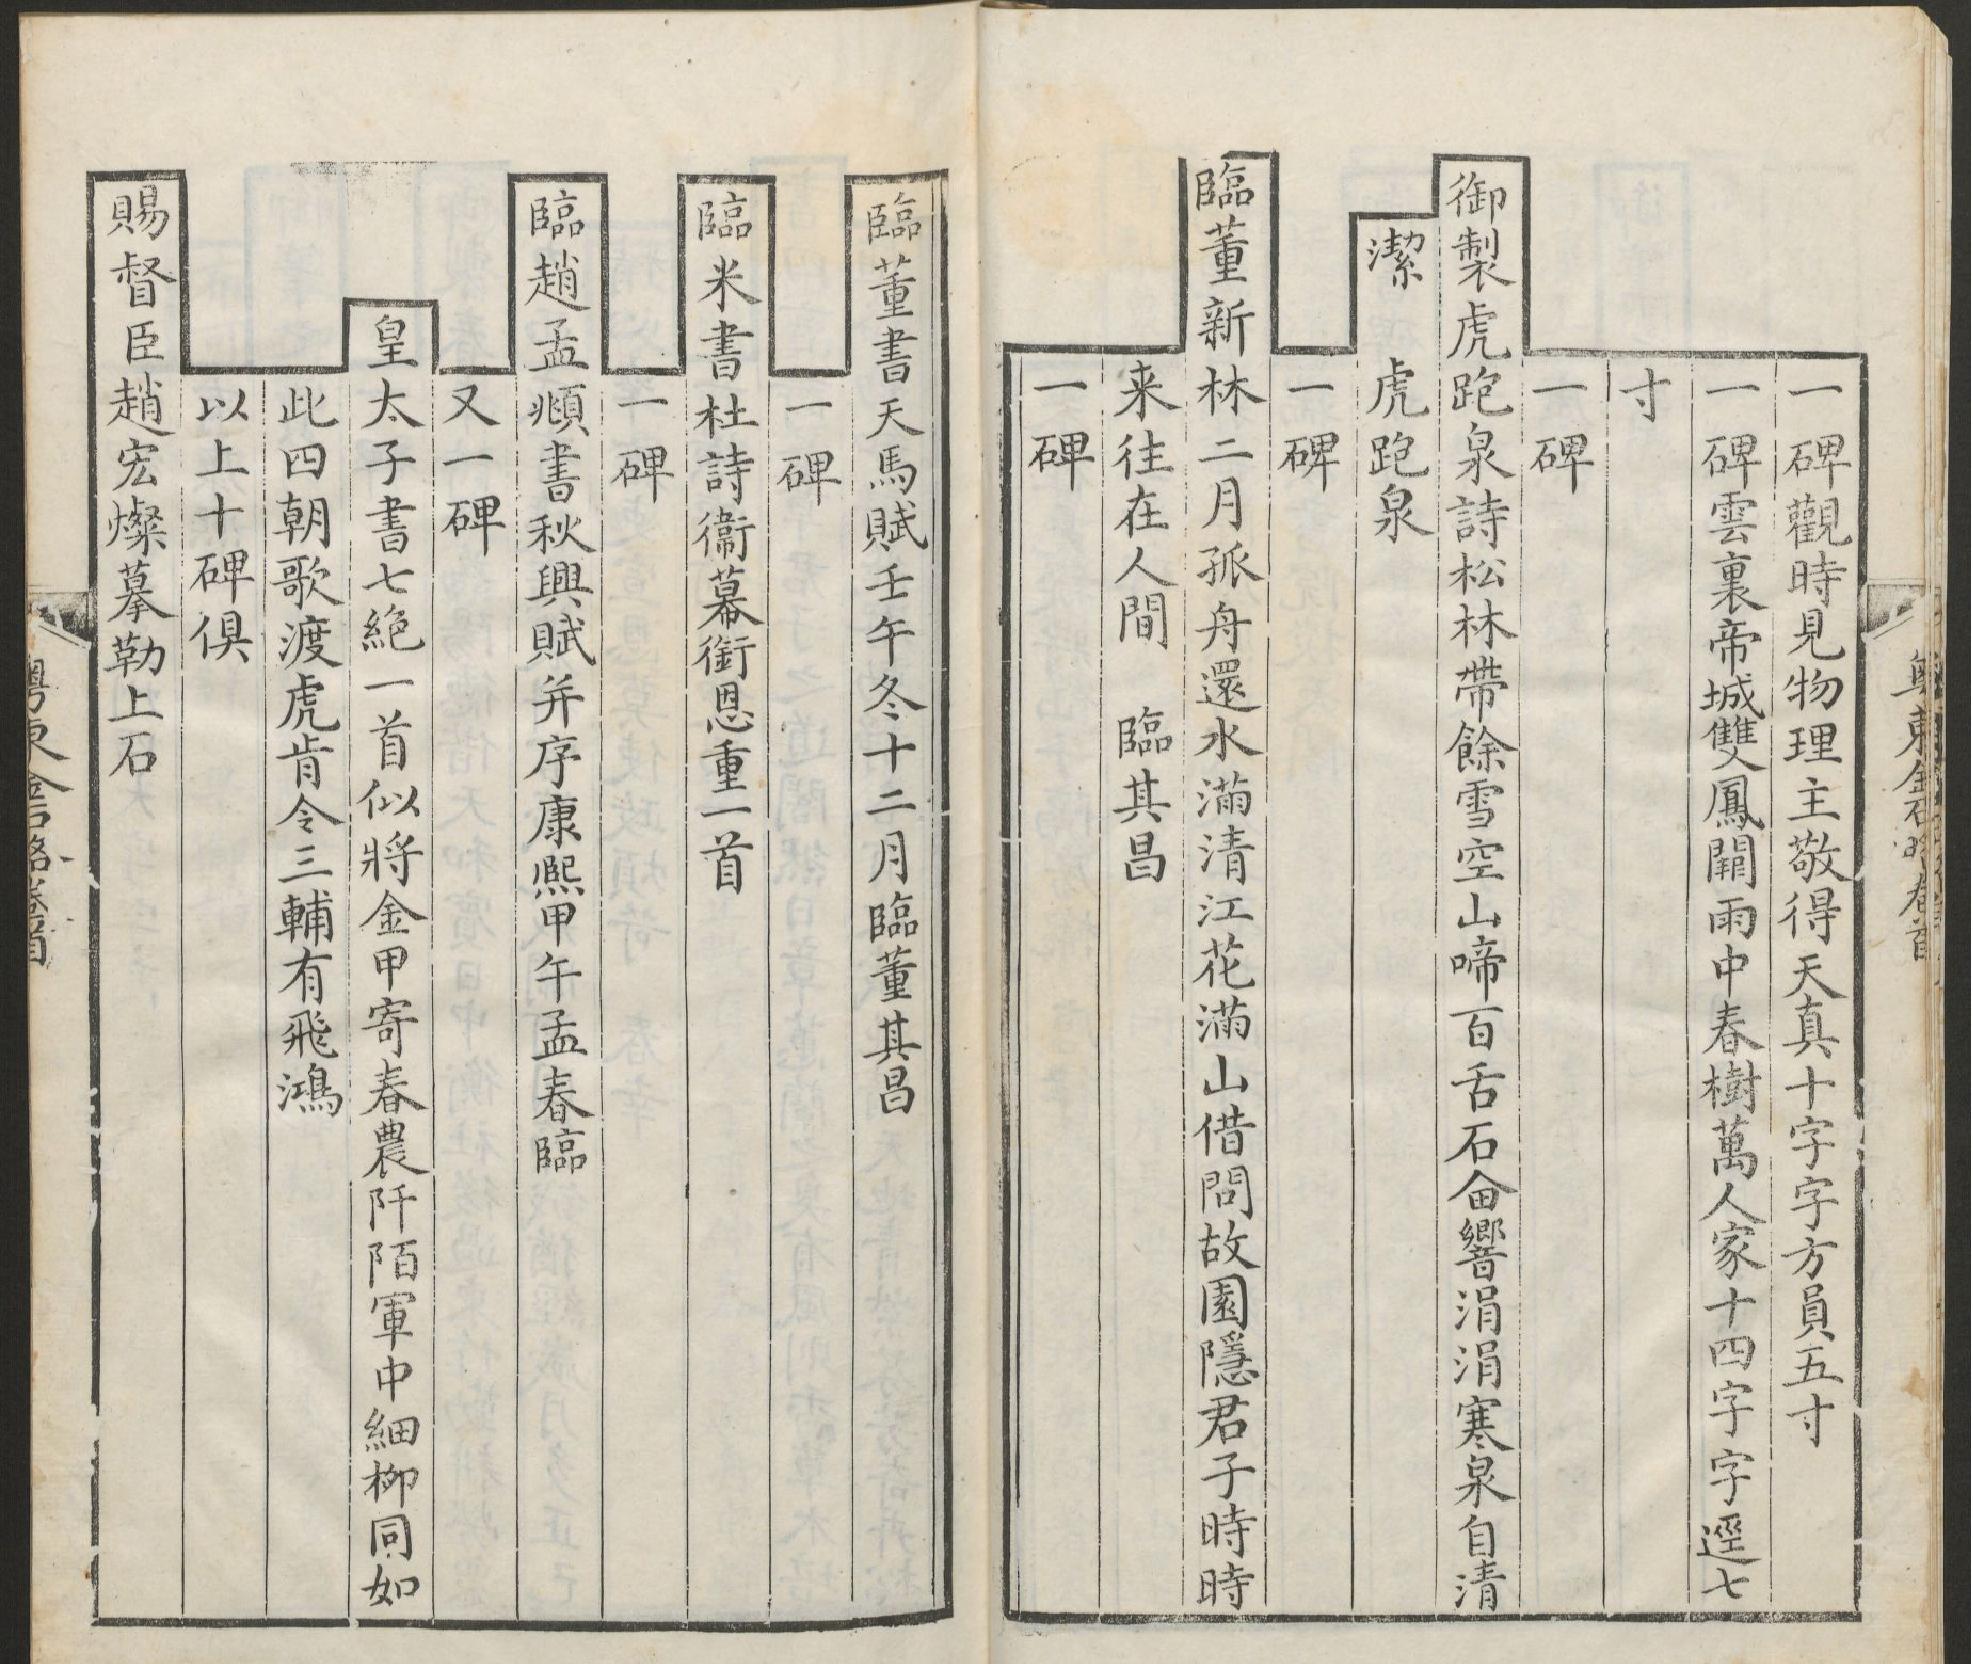 一碑觀時見物理主敬得天真十字字方員五寸
一碑雲裏帝城雙鳳闕雨中春樹萬人家十四字字逕七
寸
一碑
御製虎跑泉詩松林帶餘雪空山啼百舌石畬響涓涓寒泉自清
潔 虎跑泉
一碑
臨董新林二月孤舟還水滿清江花滿山借問故園隱君子時時
来往在人間 臨其昌
一碑
臨董書天馬賦壬午冬十二月臨董其昌
一碑
臨米書杜詩衞幕銜恩重一首
一碑
臨趙孟頫書秋興賦并序康熙甲午孟春臨
又一碑
皇太子書七絶一首似將金甲寄春農阡陌軍中細柳同如
此四朝歌渡虎肯令三輔有飛鴻
以上十碑俱
賜督臣趙宏燦摹勒上石
粤東金石略卷首